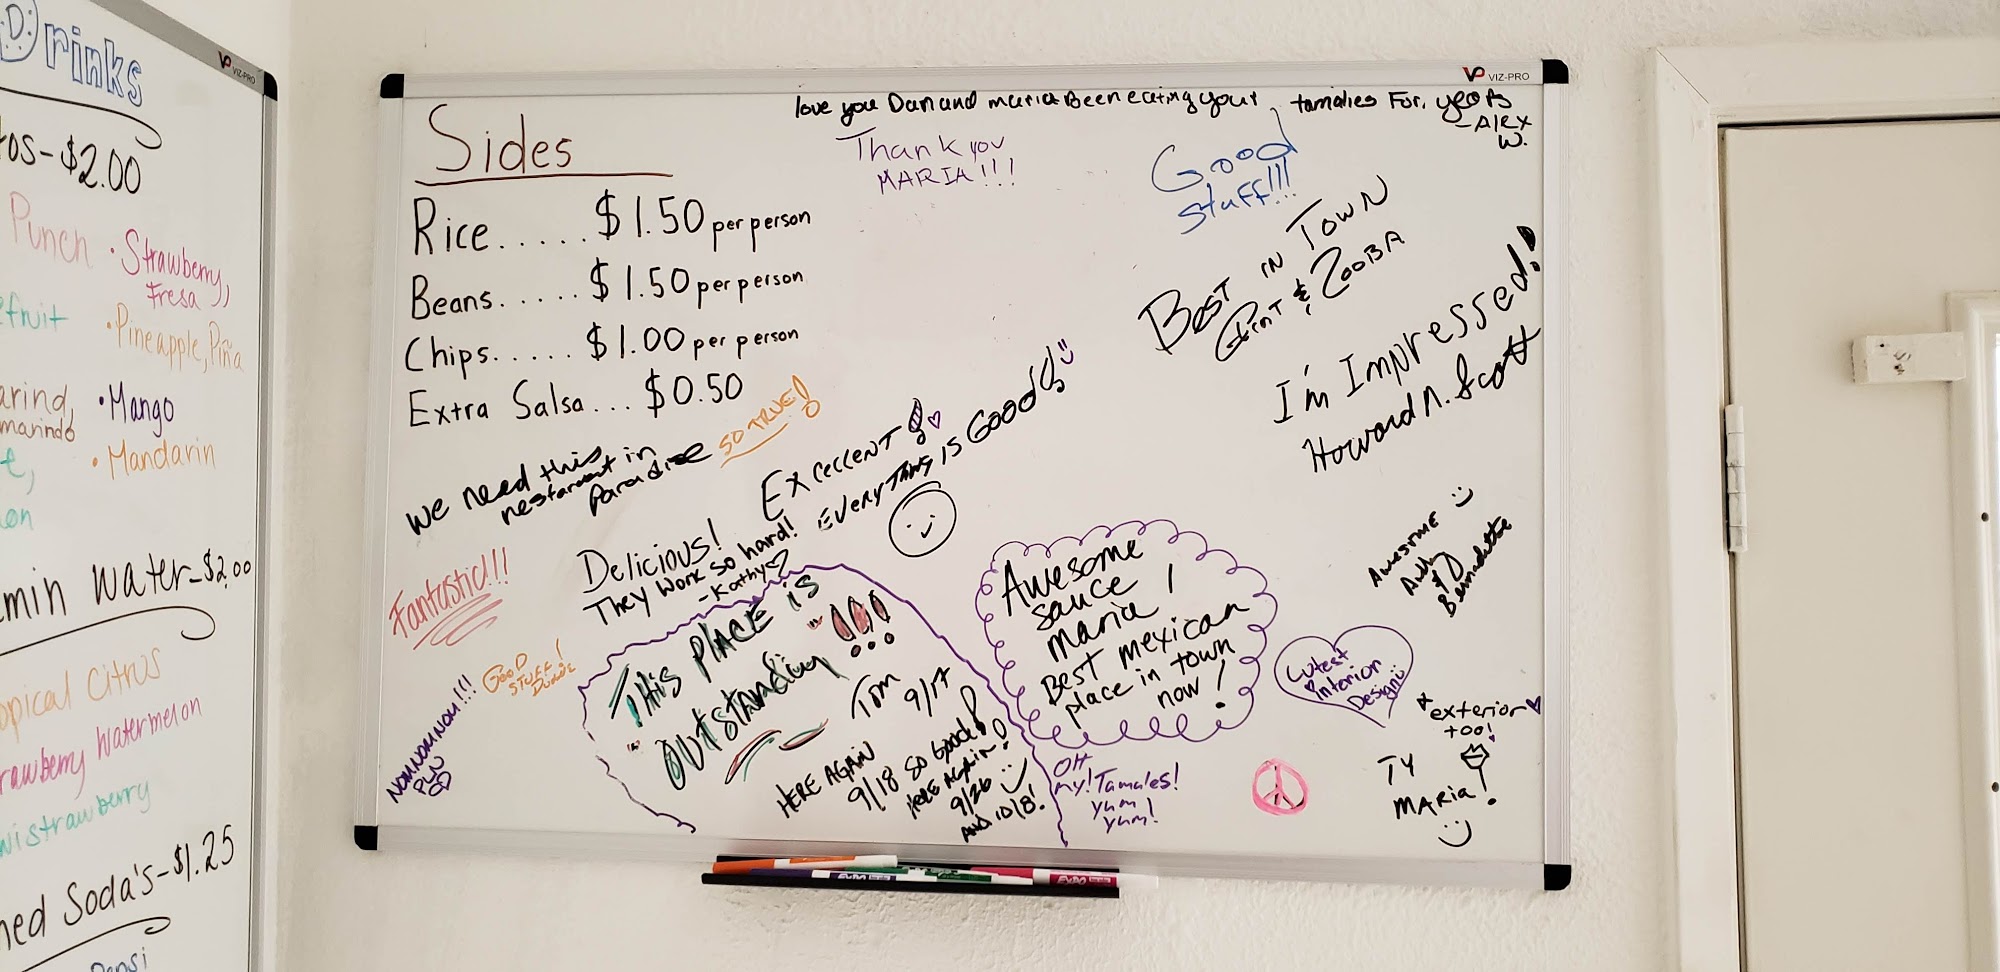 Drinks
VIZ-PRO
-$2.00
Punch
• Strawberry,
Fresa
• Pineapple, Piña
• Mango
• Mandarin
Water-$2.00
Citrus
Watermelon
Soda's-$1.25
VIZ-PRO
Sides
Rice..... $1.50 per person
Beans..... $1.50 per person
Chips..... $1.00 per person
Extra Salsa... $0.50
love you Dan and maria Been eating your tamales For, years
-Alex
W.
Thank you
MARIA!!!
Good
stuff!!!
BEST IN TOWN
& ZOOBA
I'm Impressed!
Howard N. Scott
we need this
restaurant in
Paradise
SO TRUE!
EXCELLENT!
EVERYTHING IS GOOD!
Delicious!
They work so hard!
-Kathy
Fantastic!!!
GOOD
STUFF!
NOM NOM NOM!!!
THis PLACE is
OUtstanding!!!
Tom 9/17
HERE AGAIN
9/18 SO GOOD!
HERE AGAIN!
9/26
AND 10/8!
Awesome
sauce!
maria!
Best mexican
place in town
now!
Awesome
&
Bernadette
Cutest
interior
Design
*exterior
too!
OH
my! Tamales!
yum
yum!
TY
MARIA!
EXPO
EXPO